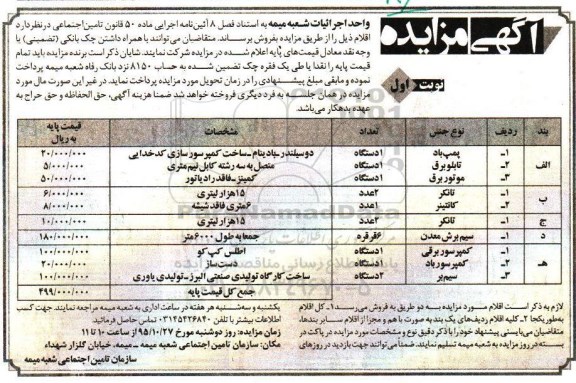 آگهی مزایده
نوبت اول
واحد اجرائیات شعبه میمه به استناد فصل ۸ آئین‌نامه اجرایی ماده ۵۰ قانون تامین اجتماعی در نظر دارد
اقلام ذیل را از طریق مزایده بفروش برساند. متقاضیان می‌توانند با همراه داشتن چک بانکی (تضمینی) یا
وجه نقد معادل قیمت‌های پایه اعلام شده در مزایده شرکت نمایند. شایان ذکر است برنده مزایده باید تمام
قیمت پایه را نقدا یا طی یک فقره چک تضمین شده به حساب ۸۱۵۰ نزد بانک رفاه شعبه میمه پرداخت
نموده و مابقی مبلغ پیشنهادی را در زمان تحویل مورد مزایده پرداخت نماید. در غیر این صورت مال مورد
مزایده در همان جلسه به فرد دیگری فروخته خواهد شد ضمنا هزینه آگهی، حق الحفاظه و حق حراج به
عهده بدهکار می‌باشد.
بند ردیف نوع جنس تعداد مشخصات قیمت پایه به ریال
الف ۱- پمپ باد ۱دستگاه دوسیلندر-بادینام-ساخت کمپرسورسازی کدخدایی ۲۰/۰۰۰/۰۰۰
۲- تابلو برق ۱دستگاه متصل به سه رشته کابل نیم متری ۵/۰۰۰/۰۰۰
۳- موتور برق ۱دستگاه کمینز-فاقد رادیاتور ۵۰/۰۰۰/۰۰۰
ب ۱- تانکر ۲عدد ۱۵هزار لیتری ۶/۰۰۰/۰۰۰
۲- کانتینر ۱عدد ۶متری فاقد شیشه ۸/۰۰۰/۰۰۰
ج ۱- تانکر ۲عدد ۱۵هزار لیتری ۱۰/۰۰۰/۰۰۰
د ۱- سیم برش معدن ۶قرقره جمعا به طول ۶۰۰۰متر ۱۸۰/۰۰۰/۰۰۰
هـ ۱- کمپرسور برقی ۱دستگاه اطلس کپ کو ۱۰۰/۰۰۰/۰۰۰
۲- کمپرسور باد ۱دستگاه دست‌ساز ۲۰/۰۰۰/۰۰۰
۳- سیم‌بر ۲دستگاه ساخت کارگاه تولیدی صنعتی البرز-تولیدی یاوری ۱۰۰/۰۰۰/۰۰۰
جمع کل قیمت پایه ۴۹۹/۰۰۰/۰۰۰
لازم به ذکر است اقلام مورد مزایده به دو طریق به فروش می‌رسد ۱- کل اقلام
به طور یکجا ۲- کلیه اقلام ردیف‌های یک بند به صورت با هم و مجزا از اقلام سایر بندها.
متقاضیان می‌بایستی پیشنهاد خود را با ذکر دقیق نوع و مشخصات مورد مزایده در پاکت در
بسته در روز مزایده به شعبه میمه تسلیم نمایند. ضمنا می‌توانند جهت بازدید در روزهای
یکشنبه و سه‌شنبه هر هفته در ساعت اداری به شعبه میمه مراجعه نمایند. جهت کسب
اطلاعات بیشتر با تلفن ۰۳۱۴۵۴۲۶۸۴۰ تماس حاصل فرمائید.
زمان مزایده: روز دوشنبه مورخ ۹۵/۱۰/۲۷ از ساعت ۱۰ تا ۱۱
مکان: سازمان تامین اجتماعی شعبه میمه – میمه، خیابان گلزار شهداء
سازمان تامین اجتماعی شعبه میمه